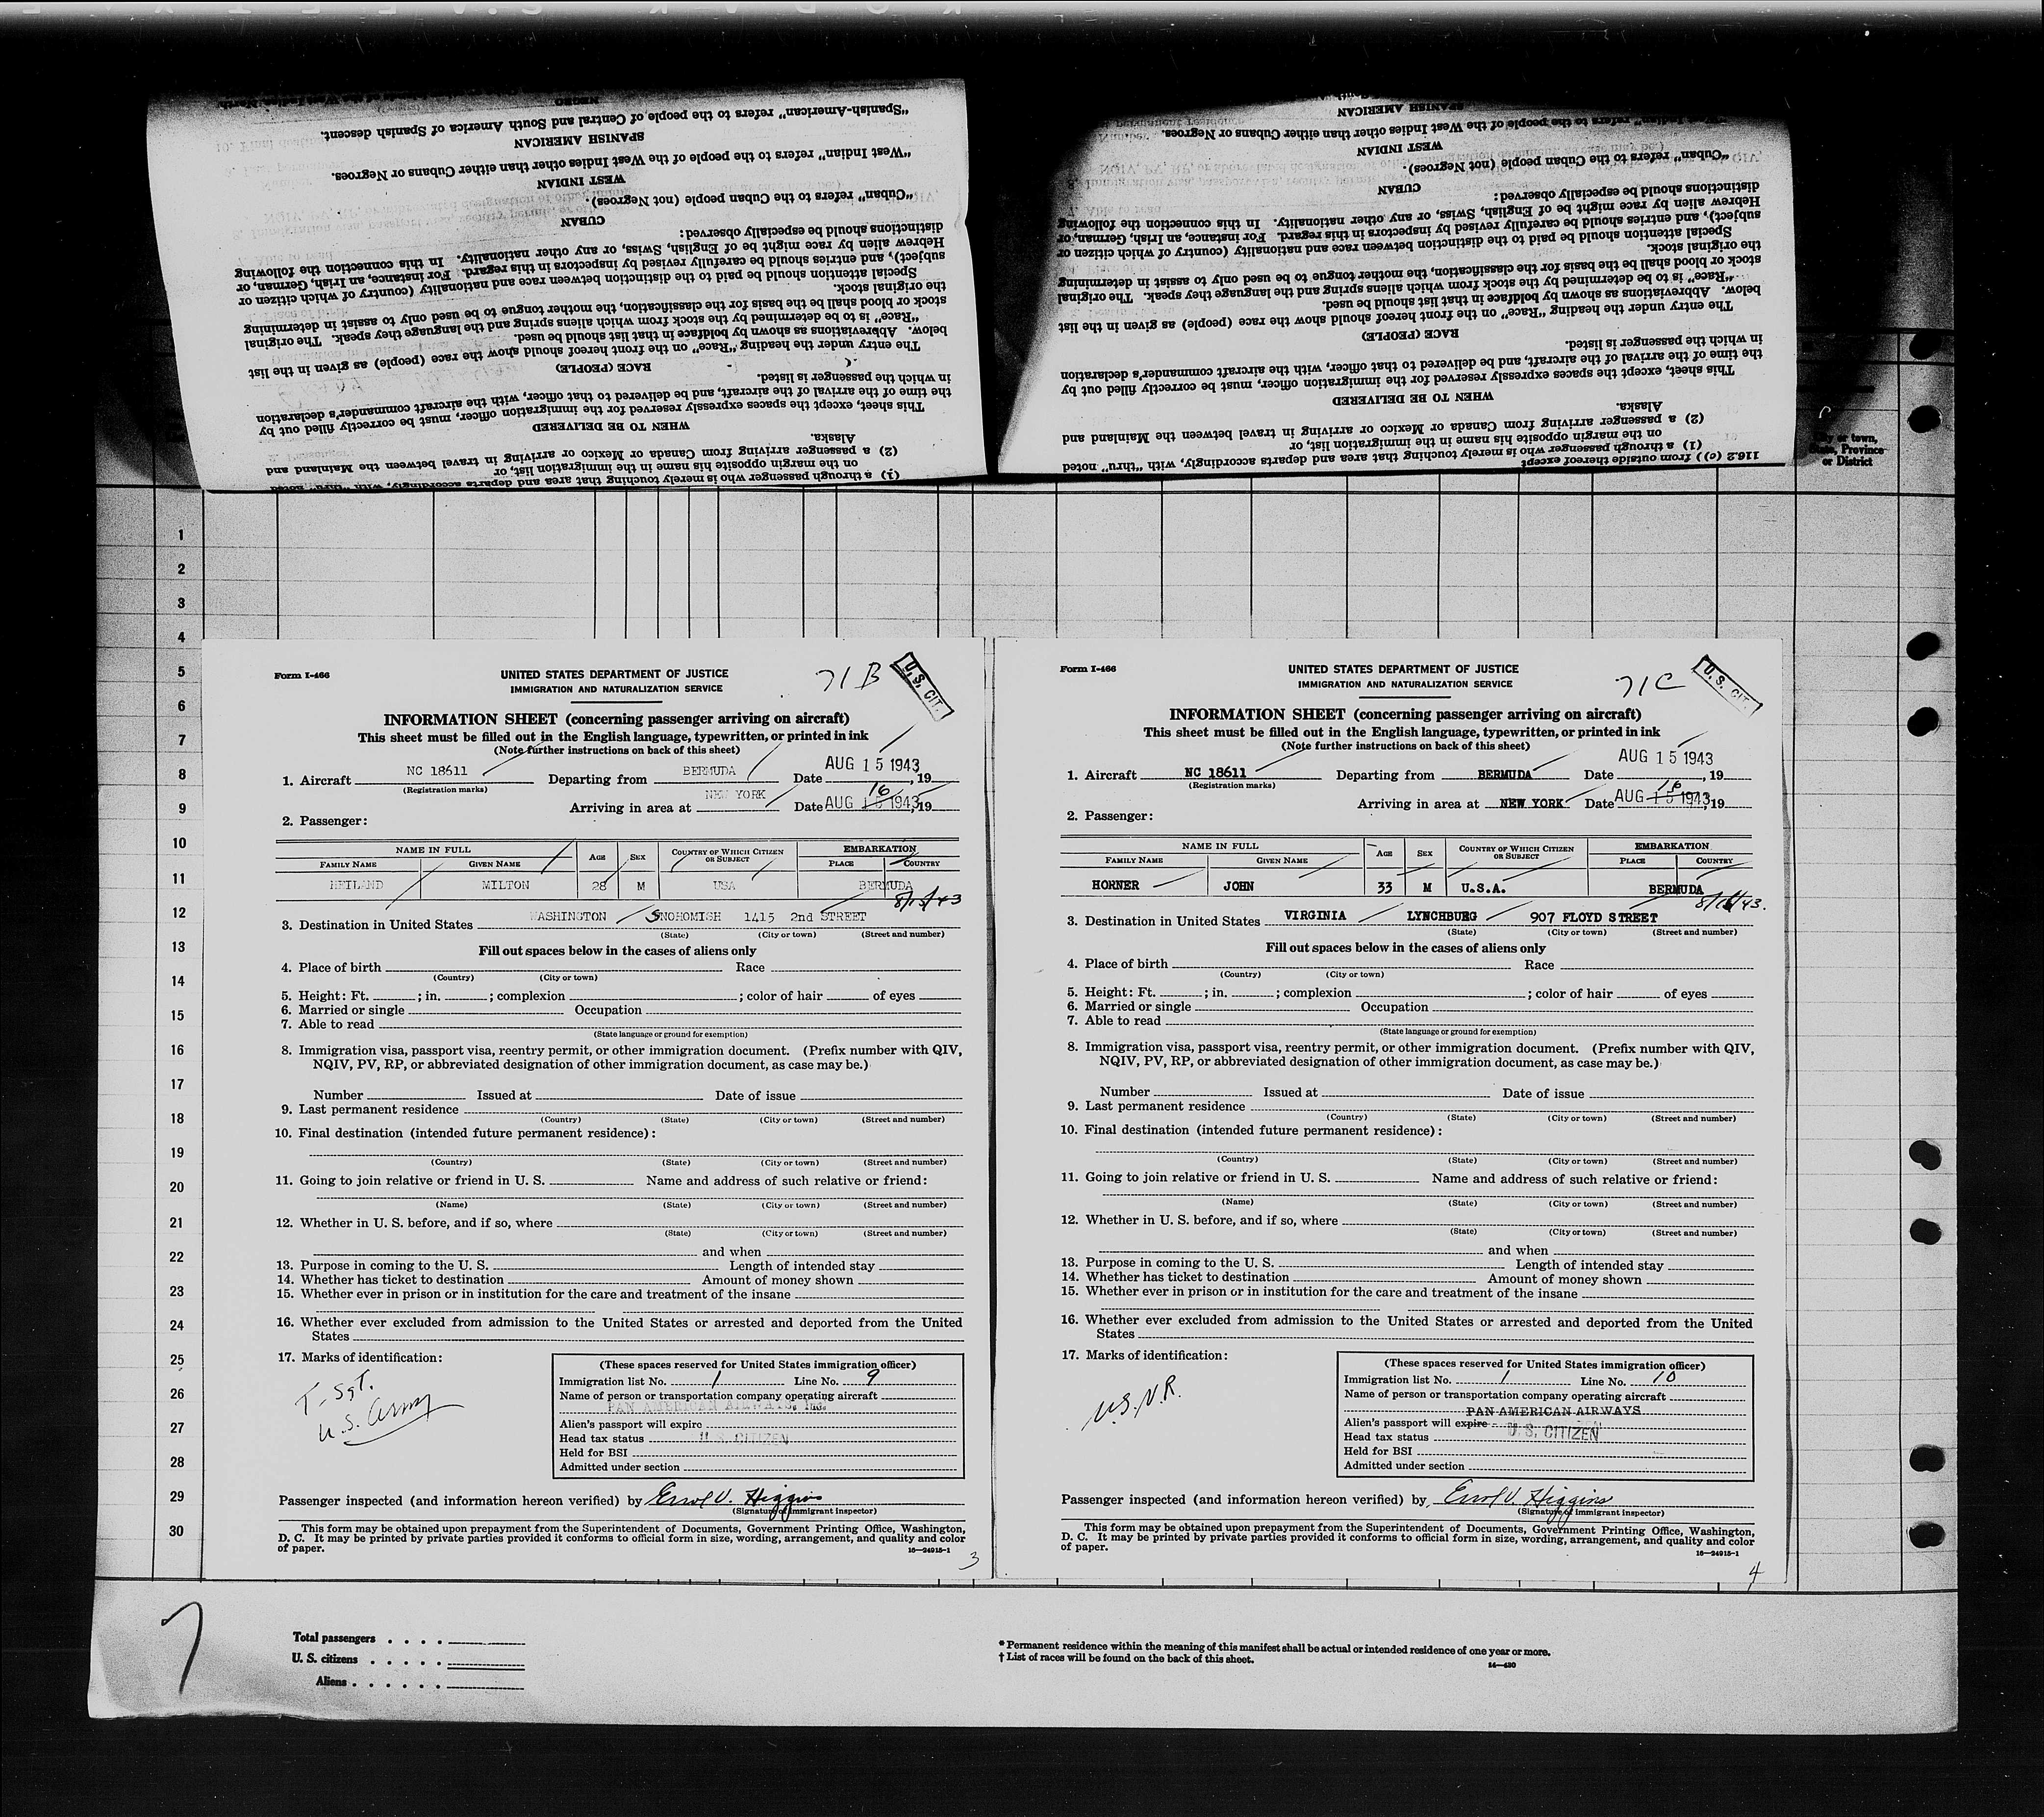 "Spanish-American" refers to the people of Central and South America of Spanish descent.
SPANISH AMERICAN
"West Indian" refers to the people of the West Indies other than either Cubans or Negroes.
WEST INDIAN
"Cuban" refers to the Cuban people (not Negroes).
CUBAN
distinctions should be especially observed:
Hebrew alien by race might be of English, Swiss, or any other nationality. In this connection the following
subject), and entries should be carefully revised by inspectors in this regard. For instance, an Irish, German, or
Special attention should be paid to the distinction between race and nationality (country of which citizen or
the original stock.
stock or blood shall be the basis for the classification, the mother tongue to be used only to assist in determining
"Race" is to be determined by the stock from which aliens spring and the language they speak. The original
below. Abbreviations as shown by boldface in that list should be used.
The entry under the heading "Race" on the front hereof should show the race (people) as given in the list
RACE (PEOPLE)
in which the passenger is listed.
the time of the arrival of the aircraft, and be delivered to that officer, with the aircraft commander's declaration
This sheet, except the spaces expressly reserved for the immigration officer, must be correctly filled out by
WHEN TO BE DELIVERED
Alaska.
(2) a passenger arriving from Canada or Mexico or arriving in travel between the Mainland and
on the margin opposite his name in the immigration list, or
(1) a through passenger who is merely touching that area and departs accordingly, with "thru" noted
SPANISH AMERICAN
"West Indian" refers to the people of the West Indies other than either Cubans or Negroes.
WEST INDIAN
"Cuban" refers to the Cuban people (not Negroes).
CUBAN
distinctions should be especially observed:
Hebrew alien by race might be of English, Swiss, or any other nationality. In this connection the following
subject), and entries should be carefully revised by inspectors in this regard. For instance, an Irish, German, or
Special attention should be paid to the distinction between race and nationality (country of which citizen or
the original stock.
stock or blood shall be the basis for the classification, the mother tongue to be used only to assist in determining
"Race" is to be determined by the stock from which aliens spring and the language they speak. The original
below. Abbreviations as shown by boldface in that list should be used.
The entry under the heading "Race" on the front hereof should show the race (people) as given in the list
RACE (PEOPLE)
in which the passenger is listed.
the time of the arrival of the aircraft, and be delivered to that officer, with the aircraft commander's declaration
This sheet, except the spaces expressly reserved for the immigration officer, must be correctly filled out by
WHEN TO BE DELIVERED
Alaska.
(2) a passenger arriving from Canada or Mexico or arriving in travel between the Mainland and
on the margin opposite his name in the immigration list, or
(1) a through passenger who is merely touching that area and departs accordingly, with "thru" noted
116.2 (c) ) from outside thereof except
or town,
State, Province
or District
1
2
3
4
5
6
7
8
9
10
11
12
13
14
15
16
17
18
19
20
21
22
23
24
25
26
27
28
29
30
Form I-466
UNITED STATES DEPARTMENT OF JUSTICE
IMMIGRATION AND NATURALIZATION SERVICE
71B
U.S. CIT.
INFORMATION SHEET (concerning passenger arriving on aircraft)
This sheet must be filled out in the English language, typewritten, or printed in ink
(Note further instructions on back of this sheet)
1. Aircraft NC 18611 Departing from BERMUDA Date AUG 15 1943, 19
(Registration marks)
Arriving in area at NEW YORK Date AUG 15 1943, 19
16
2. Passenger:
NAME IN FULL AGE SEX COUNTRY OF WHICH CITIZEN OR SUBJECT EMBARKATION
FAMILY NAME GIVEN NAME PLACE COUNTRY
HEILAND MILTON 28 M USA BERMUDA
8/15/43
3. Destination in United States WASHINGTON SNOHOMISH 1415 2nd STREET
(State) (City or town) (Street and number)
Fill out spaces below in the cases of aliens only
4. Place of birth Race
(Country) (City or town)
5. Height: Ft. ; in. ; complexion ; color of hair of eyes
6. Married or single Occupation
7. Able to read
(State language or ground for exemption)
8. Immigration visa, passport visa, reentry permit, or other immigration document. (Prefix number with QIV,
NQIV, PV, RP, or abbreviated designation of other immigration document, as case may be.)
Number Issued at Date of issue
9. Last permanent residence
(Country) (State) (City or town) (Street and number)
10. Final destination (intended future permanent residence):
(Country) (State) (City or town) (Street and number)
11. Going to join relative or friend in U. S. Name and address of such relative or friend:
(Name) (State) (City or town) (Street and number)
12. Whether in U. S. before, and if so, where
(State) (City or town) (Street and number)
and when
13. Purpose in coming to the U. S. Length of intended stay
14. Whether has ticket to destination Amount of money shown
15. Whether ever in prison or in institution for the care and treatment of the insane
16. Whether ever excluded from admission to the United States or arrested and deported from the United
States
17. Marks of identification:
T-Sgt.
U.S. Army
(These spaces reserved for United States immigration officer)
Immigration list No. 1 Line No. 9
Name of person or transportation company operating aircraft
PAN AMERICAN AIRWAYS, Inc.
Alien's passport will expire
Head tax status U.S. CITIZEN
Held for BSI
Admitted under section
Passenger inspected (and information hereon verified) by Errol V. Higgins
(Signature of immigrant inspector)
This form may be obtained upon prepayment from the Superintendent of Documents, Government Printing Office, Washington,
D. C. It may be printed by private parties provided it conforms to official form in size, wording, arrangement, and quality and color
of paper.
16—24915-1
3
Form I-466
UNITED STATES DEPARTMENT OF JUSTICE
IMMIGRATION AND NATURALIZATION SERVICE
71C
U.S. CIT.
INFORMATION SHEET (concerning passenger arriving on aircraft)
This sheet must be filled out in the English language, typewritten, or printed in ink
(Note further instructions on back of this sheet)
1. Aircraft NC 18611 Departing from BERMUDA Date AUG 15 1943, 19
(Registration marks)
Arriving in area at NEW YORK Date AUG 15 1943, 19
16
2. Passenger:
NAME IN FULL AGE SEX COUNTRY OF WHICH CITIZEN OR SUBJECT EMBARKATION
FAMILY NAME GIVEN NAME PLACE COUNTRY
HORNER JOHN 33 M U.S.A. BERMUDA
3. Destination in United States VIRGINIA LYNCHBURG 907 FLOYD STREET
(State) (City or town) (Street and number)
Fill out spaces below in the cases of aliens only
4. Place of birth Race
(Country) (City or town)
5. Height: Ft. ; in. ; complexion ; color of hair of eyes
6. Married or single Occupation
7. Able to read
(State language or ground for exemption)
8. Immigration visa, passport visa, reentry permit, or other immigration document. (Prefix number with QIV,
NQIV, PV, RP, or abbreviated designation of other immigration document, as case may be.)
Number Issued at Date of issue
9. Last permanent residence
(Country) (State) (City or town) (Street and number)
10. Final destination (intended future permanent residence):
(Country) (State) (City or town) (Street and number)
11. Going to join relative or friend in U. S. Name and address of such relative or friend:
(Name) (State) (City or town) (Street and number)
12. Whether in U. S. before, and if so, where
(State) (City or town) (Street and number)
and when
13. Purpose in coming to the U. S. Length of intended stay
14. Whether has ticket to destination Amount of money shown
15. Whether ever in prison or in institution for the care and treatment of the insane
16. Whether ever excluded from admission to the United States or arrested and deported from the United
States
17. Marks of identification:
U.S.N.R.
(These spaces reserved for United States immigration officer)
Immigration list No. 1 Line No. 10
Name of person or transportation company operating aircraft
PAN AMERICAN AIRWAYS
Alien's passport will expire
Head tax status U.S. CITIZEN
Held for BSI
Admitted under section
Passenger inspected (and information hereon verified) by Errol V. Higgins
(Signature of immigrant inspector)
This form may be obtained upon prepayment from the Superintendent of Documents, Government Printing Office, Washington,
D. C. It may be printed by private parties provided it conforms to official form in size, wording, arrangement, and quality and color
of paper.
16—24915-1
4
7
Total passengers
U. S. citizens
Aliens
* Permanent residence within the meaning of this manifest shall be actual or intended residence of one year or more.
† List of races will be found on the back of this sheet.
14—430